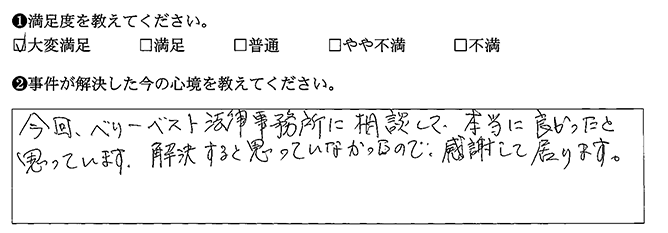 ❶満足度を教えてください。
☑大変満足 □満足 □普通 □やや不満 □不満
❷事件が解決した今の心境を教えてください。
今回、ベリーベスト法律事務所に相談して、本当に良かったと
思っています。解決すると思っていなかったので、感謝して居ります。